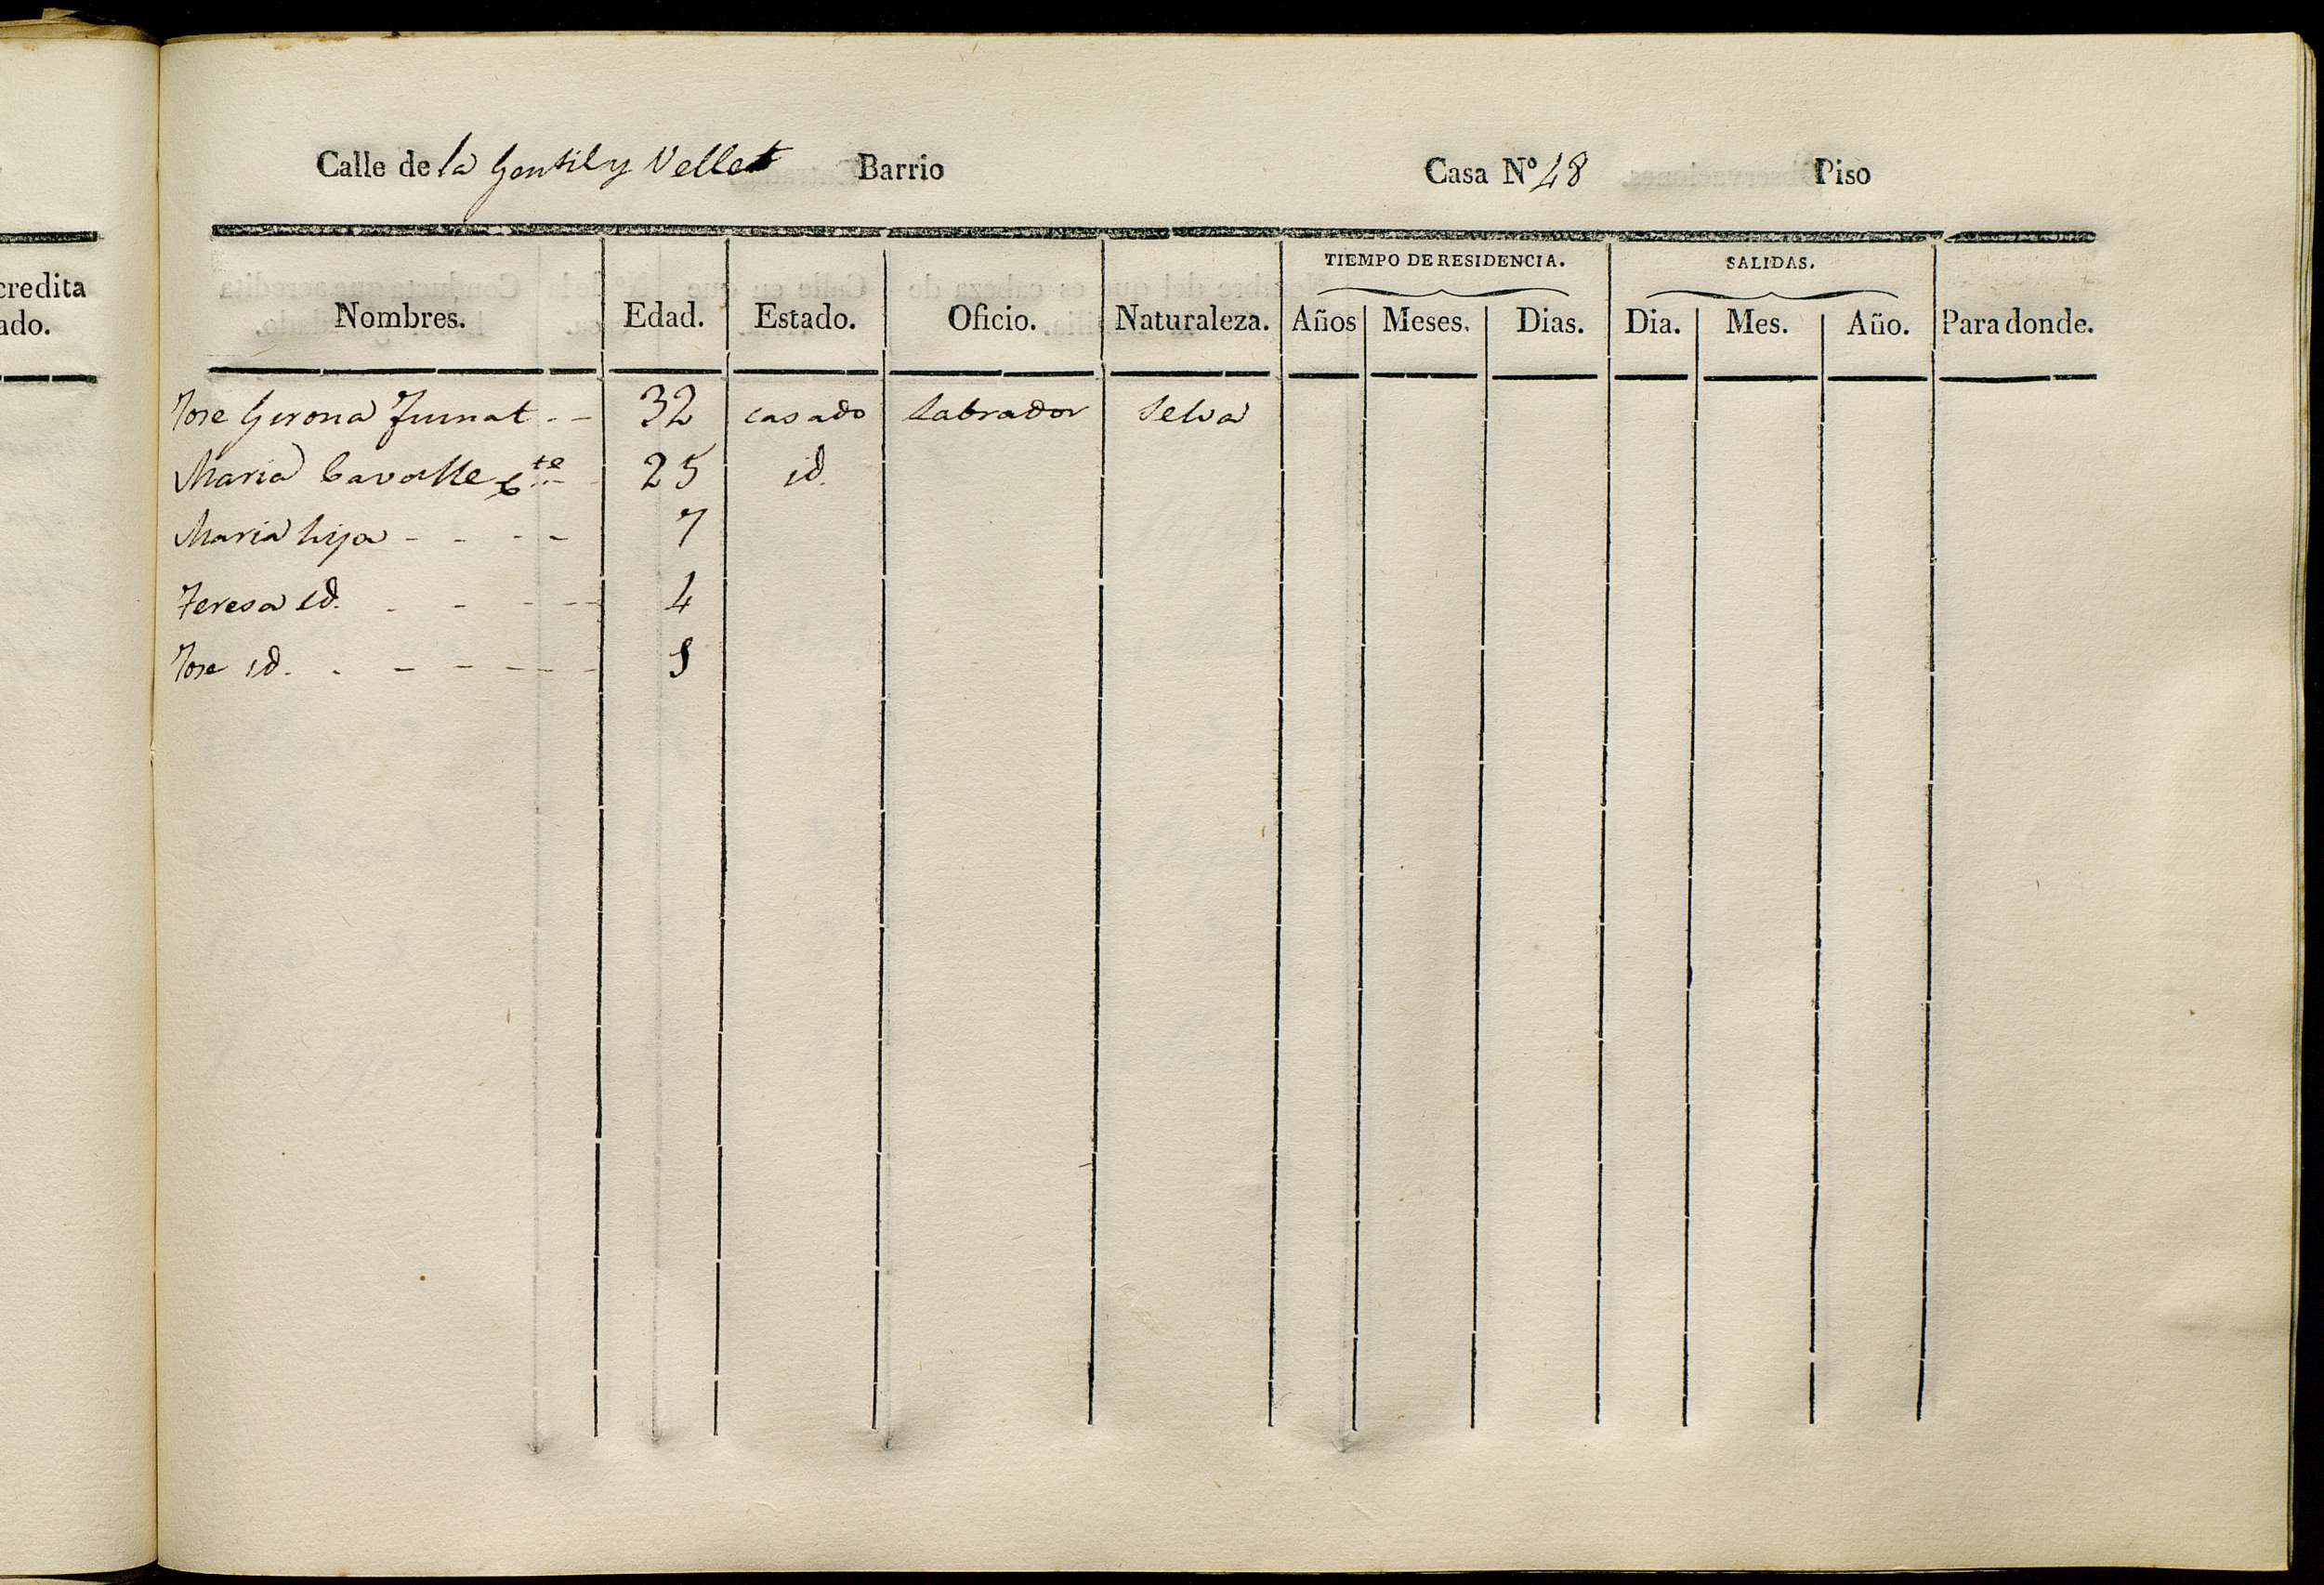 Calle de la Gentil y Vellet Barrio Casa Nº 48 Piso
credita
ado.
TIEMPO DE RESIDENCIA. SALIDAS.
Nombres. Edad. Estado. Oficio. Naturaleza. Años Meses. Dias. Dia. Mes. Año. Para donde.
Jose Gerona Jumat - - 32 casado labrador Selva
Maria 25 id.
Maria hija - - - - 7
Teresa id. - - - - 4
Jose id. - - - - - -